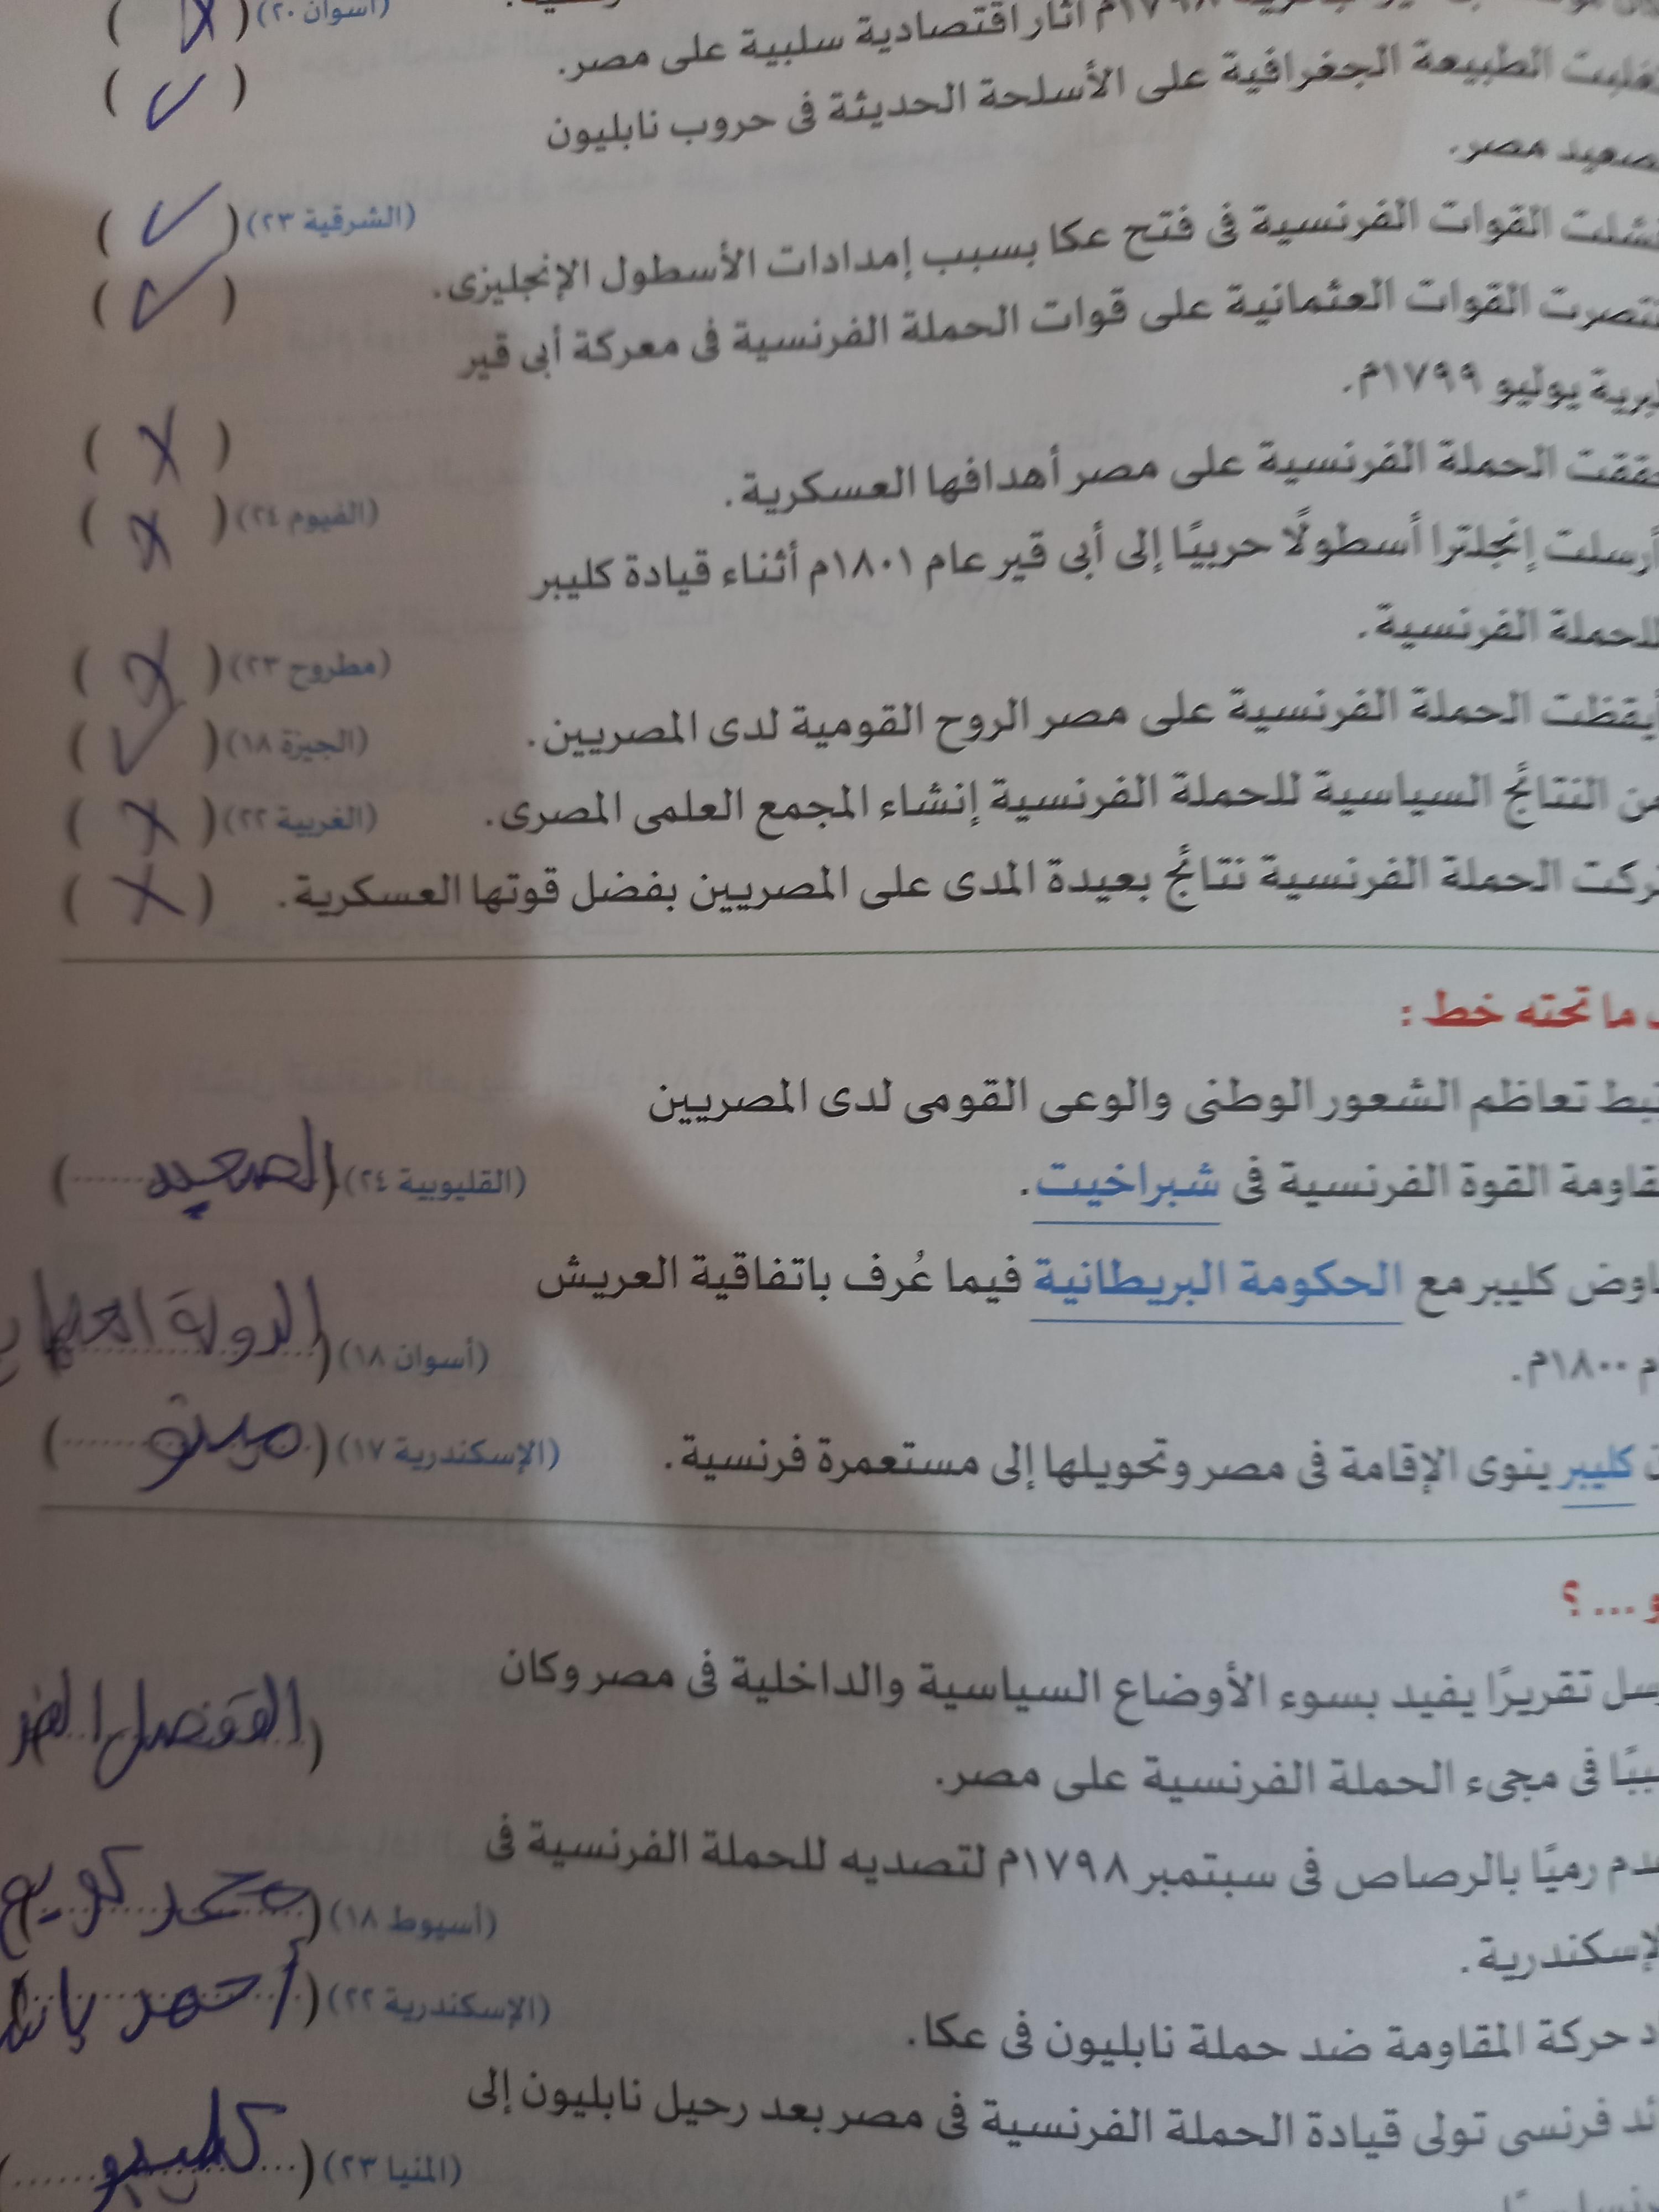 (أسوان ٢٠) ( X )
١٧٩٨م آثار اقتصادية سلبية على مصر. ( ✓ )
الطبيعة الجغرافية على الأسلحة الحديثة فى حروب نابليون
صعيد مصر. (الشرقية ٢٣) ( ✓ )
القوات الفرنسية فى فتح عكا بسبب إمدادات الأسطول الإنجليزى. ( ✓ )
القوات العثمانية على قوات الحملة الفرنسية فى معركة أبى قير
يوليو ١٧٩٩م. ( X )
الحملة الفرنسية على مصر أهدافها العسكرية. (الفيوم ٢٤) ( X )
أرسلت إنجلترا أسطولًا حربيًا إلى أبى قير عام ١٨٠١م أثناء قيادة كليبر
للحملة الفرنسية. (مطروح ٢٣) ( X )
أيقظت الحملة الفرنسية على مصر الروح القومية لدى المصريين. (الجيزة ١٨) ( ✓ )
النتائج السياسية للحملة الفرنسية إنشاء المجمع العلمى المصرى. (الغربية ٢٢) ( X )
الحملة الفرنسية نتائج بعيدة المدى على المصريين بفضل قوتها العسكرية. ( X )
ما تحته خط :
تعاظم الشعور الوطنى والوعى القومى لدى المصريين
القوة الفرنسية فى شبراخيت. (القليوبية ٢٤) (الصعيد)
كليبر مع الحكومة البريطانية فيما عُرف باتفاقية العريش
١٨٠٠م. (أسوان ١٨) (الدولة
كليبر ينوى الإقامة فى مصر وتحويلها إلى مستعمرة فرنسية. (الإسكندرية ١٧) (مينو)
... ؟
تقريرًا يفيد بسوء الأوضاع السياسية والداخلية فى مصر وكان
فى مجىء الحملة الفرنسية على مصر. (القنصل
رميًا بالرصاص فى سبتمبر ١٧٩٨م لتصديه للحملة الفرنسية فى
(أسيوط ١٨) (محمد كريم
حركة المقاومة ضد حملة نابليون فى عكا. (الإسكندرية ٢٢) (أحمد باشا
فرنسى تولى قيادة الحملة الفرنسية فى مصر بعد رحيل نابليون إلى
(المنيا ٢٣) (كليبر)